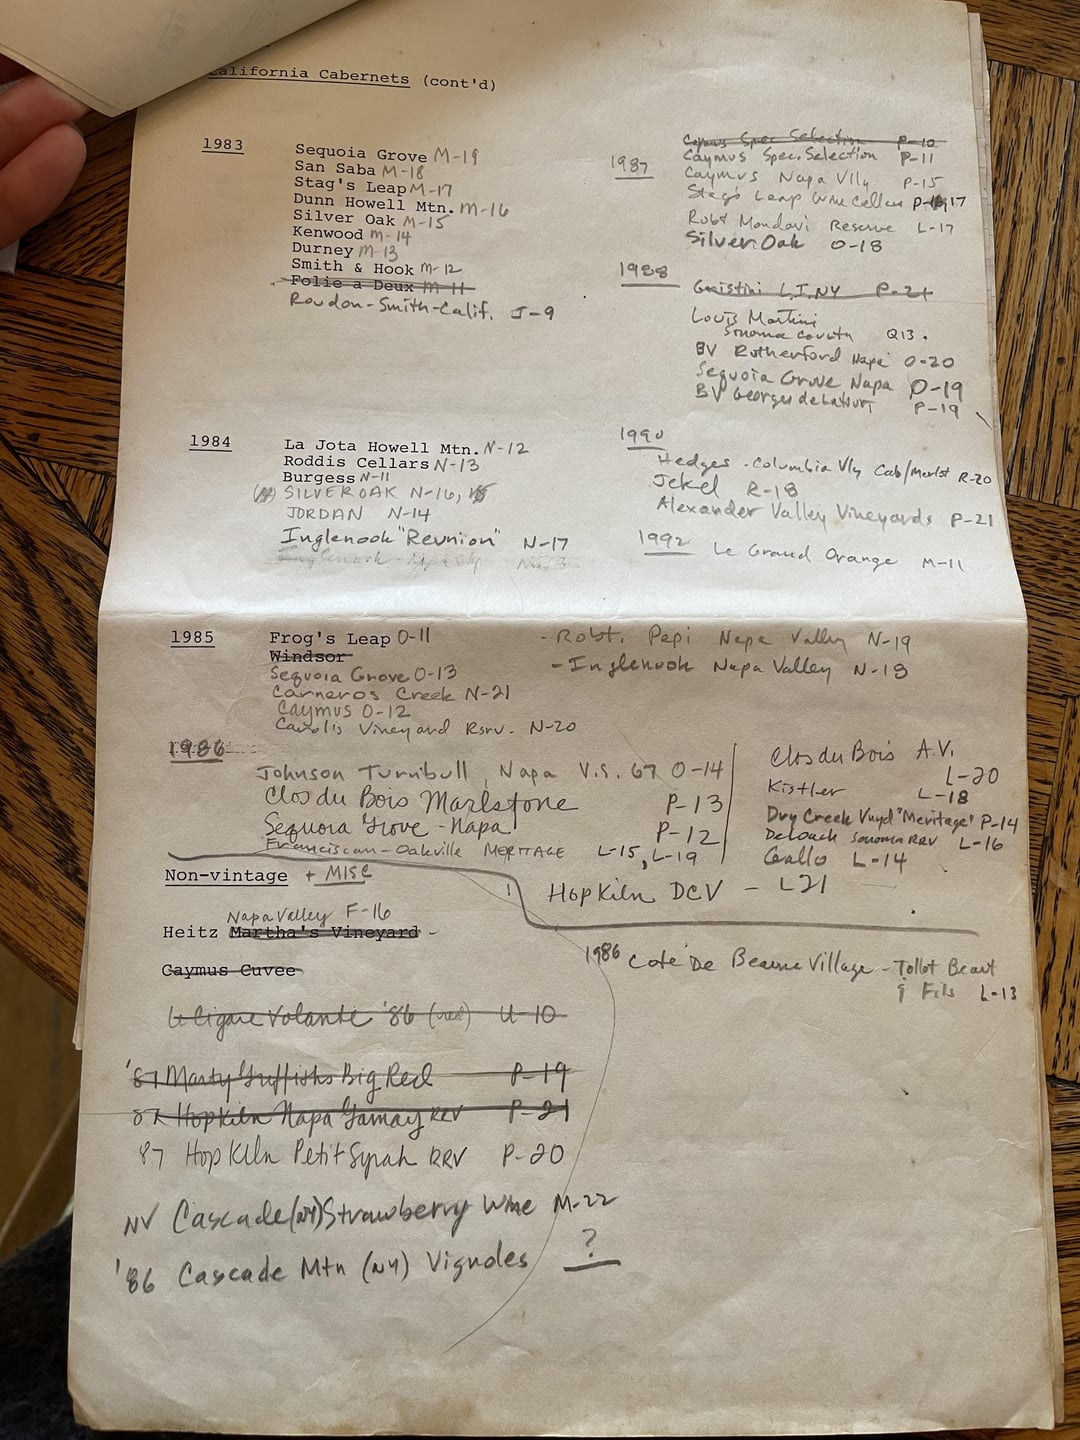 California Cabernets (cont'd)
1983
Sequoia Grove M-19
San Saba M-18
Stag's Leap M-17
Dunn Howell Mtn. M-16
Silver Oak M-15
Kenwood M-14
Durney M-13
Smith & Hook M-12
Folie a Deux M-11
Roudon-Smith-Calif. J-9
1984
La Jota Howell Mtn. N-12
Roddis Cellars N-13
Burgess N-11
SILVER OAK N-16, 15
JORDAN N-14
Inglenook "Reunion" N-17
Inglenook
1987
Caymus Spec Selection P-10
Caymus Spec. Selection P-11
Caymus Napa Vlly P-15
Stag's Leap Wine Cellars P-16,17
Robt Mondavi Reserve L-17
Silver Oak O-18
1988
L.I. NY P-21
Louis Martini
Sonoma County Q13.
BV Rutherford Napa O-20
Sequoia Grove Napa O-19
BV Georges de Latour P-19
1990
Hedges - Columbia Vly Cab/Merlot R-20
Jekel R-18
Alexander Valley Vineyards P-21
1992 Le Grand Orange M-11
1985
Frog's Leap O-11
Windsor
Sequoia Grove O-13
Carneros Creek N-21
Caymus O-12
Vineyard Rsrv. N-20
- Robt. Pepi Napa Valley N-19
- Inglenook Napa Valley N-18
1986
Johnson Turnbull, Napa V.S. 67 O-14
Clos du Bois Marlstone P-13
Sequoia Grove - Napa P-12
Franciscan - Oakville MERITAGE L-15, L-19
Clos du Bois A.V.
L-20
Kistler L-18
Dry Creek Vnyd "Meritage" P-14
DeLoach Sonoma RRV L-16
Gallo L-14
Hop Kiln DCV - L21
Non-vintage + MISC
Napa Valley F-16
Heitz Martha's Vineyard -
Caymus Cuvee
Le Cigare Volante '86 (red) U-10
'87 Marty Griffiths Big Red P-19
87 Hop Kiln Napa Gamay RRV P-21
87 Hop Kiln Petit Syrah RRV P-20
NV Cascade (NY) Strawberry Wine M-22
'86 Cascade Mtn (NY) Vignoles ?
1986 Cote De Beaune Village - Tollot Beaut
& Fils L-13